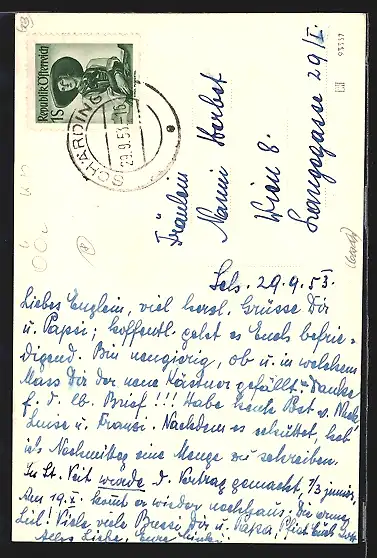 Republik Österreich
1 S
SCHÄRDING
29.9.53
93557
Fräulein
Nanni Herbst
Wien 8.
Langegasse 29/I.
Sch. 29.9.53.
Liebes Englein, viel herzl. Grüsse Dir
u. Papsi; hoffentl. geht es Euch befrie-
digend. Bin neugierig, ob u. in welchem
Mass Dir der neue Kästner gefällt. Danke
f. d. lb. Brief!!! Habe heute Post v.
Luise u. Franzi. Nachdem es schüttet, hab'
ich Nachmittag eine Menge zu schreiben.
In St. Veit wurde d. Vertrag gemacht, 1/3
Am 19.X. kommt er wieder nachhaus. Die arme
Lis! Viele, viele Bussi Dir u. Papsi,
Alles Liebe, Eure